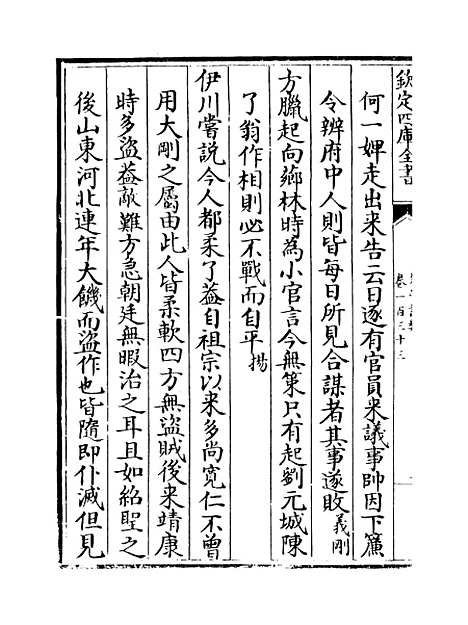 欽定四庫全書
卷一百三十三
何一婢走出来告云日逐有官員来議事帥因下簾
令辨府中人則皆每日所見合謀者其事遂敗義剛
方臘起向薌林時為小官言今無策只有起劉元城陳
了翁作相則必不戰而自平揚
伊川嘗説今人都柔了葢自祖宗以来多尚寛仁不曽
用大剛之屬由此人皆柔軟四方無盜賊後来靖康
時多盜葢敵難方急朝廷無暇治之耳且如紹聖之
後山東河北連年大饑而盜作也皆隨即仆滅但見